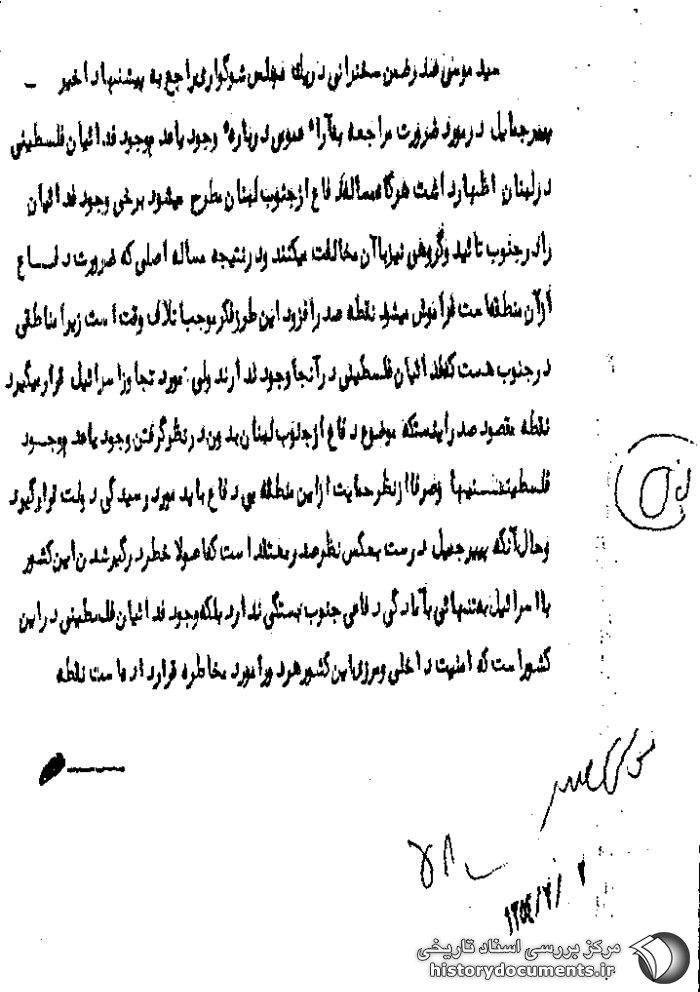 سید موسی صدر ضمن سخنرانی در یک مجلس سوگواری راجع به پیشنهاد اخیر –
پیر جمایل در مورد ضرورت مراجعه بآراء عمومی درباره وجود یا عدم وجود فدائیان فلسطینی
در لبنان اظهار داشت هرگاه مساله دفاع از جنوب لبنان مطرح میشود برخی وجود فدائیان
را در جنوب تائید و گروهی نیز با آن مخالفت میکنند و در نتیجه مساله اصلی که ضرورت دفاع
از آن منطقه است فراموش میشود نقطه صدر افزود این طرز فکر موجب اتلاف وقت است زیرا مناطقی
در جنوب هست که فدائیان فلسطینی در آنجا وجود ندارند ولی مورد تجاوز اسرائیل قرار میگیرد
نقطه مقصود صدر اینستکه موضوع دفاع از جنوب لبنان بدون در نظر گرفتن وجود یا عدم وجود
فلسطینیها و صرفا از نظر حمایت از این منطقه بی دفاع باید مورد رسیدگی دولت قرار گیرد
و حال آنکه پیر جمیل درست بعکس نظر صدر معتقد است که اصولا خطر درگیر شدن این کشور
با اسرائیل به تنهائی بآمادگی دفاعی جنوب بستگی ندارد بلکه وجود فدائیان فلسطینی در این
کشور است که امنیت داخلی و مرزی این کشور هر دو را مورد مخاطره قرار داده است نقطه
مرکز بررسی اسناد تاریخی
historydocuments.ir